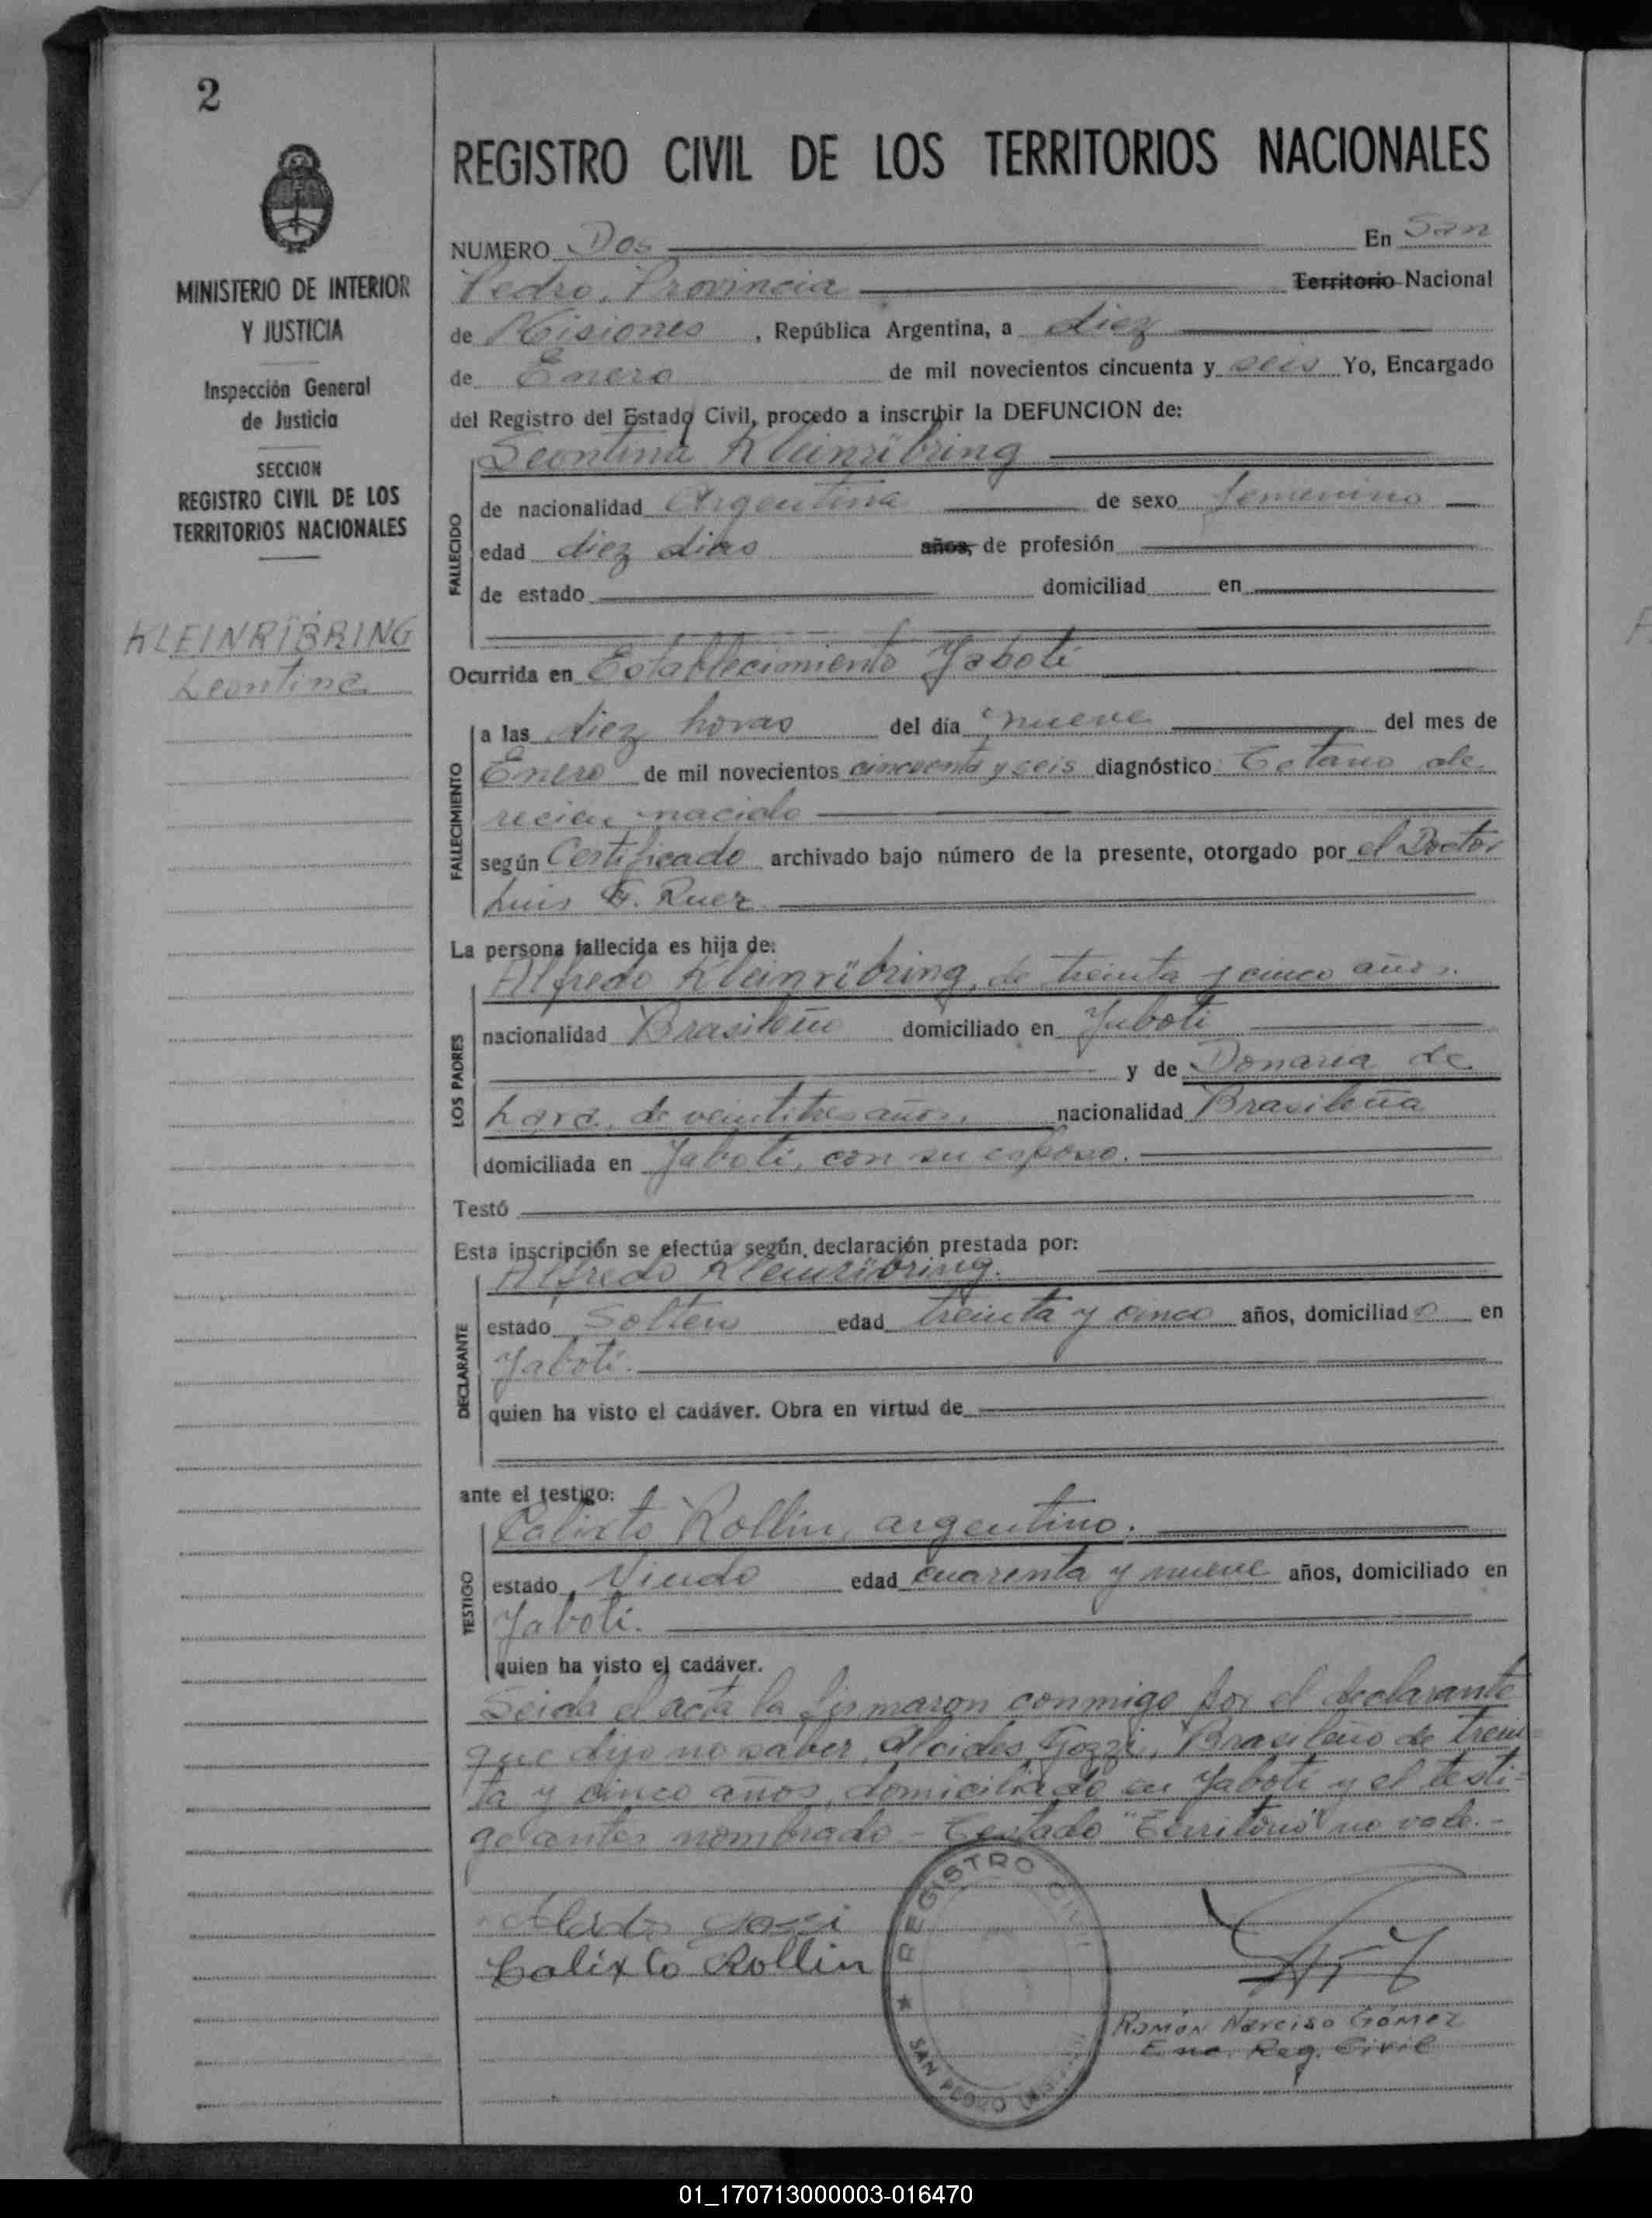 2
MINISTERIO DE INTERIOR
Y JUSTICIA
Inspección General
de Justicia
SECCION
REGISTRO CIVIL DE LOS
TERRITORIOS NACIONALES
KLEINRÏBRING
Leontina
REGISTRO CIVIL DE LOS TERRITORIOS NACIONALES
NUMERO Dos En San
Pedro, Provincia Territorio Nacional
de Misiones, República Argentina, a diez
de Enero de mil novecientos cincuenta y seis Yo, Encargado
del Registro del Estado Civil, procedo a inscribir la DEFUNCION de:
Leontina Kleinrïbring
FALLECIDO
de nacionalidad Argentina de sexo femenino
edad diez dias años, de profesión
de estado domiciliad en
Ocurrida en Establecimiento Yabotí
FALLECIMIENTO
a las diez horas del día nueve del mes de
Enero de mil novecientos cincuenta y seis diagnóstico Tetano de
recien nacido
según Certificado archivado bajo número de la presente, otorgado por el Doctor
Luis Ruez
La persona fallecida es hija de:
LOS PADRES
Alfredo Kleinrïbring, de treinta y cinco años.
nacionalidad Brasileño domiciliado en Yabotí
y de Donaria de
Lara, de veintitres años, nacionalidad Brasileña
domiciliada en Yabotí, con su esposo.
Testó
Esta inscripción se efectúa según declaración prestada por:
DECLARANTE
Alfredo Kleinrïbring.
estado Soltero edad treinta y cinco años, domiciliado en
Yabotí.
quien ha visto el cadáver. Obra en virtud de
ante el testigo:
TESTIGO
Calixto Rollin, argentino.
estado Viudo edad cuarenta y nueve años, domiciliado en
Yabotí.
quien ha visto el cadáver.
Leida el acta la firmaron conmigo por el declarante
que dijo no saber, Alcides Gozzi, Brasileño de trein=
ta y cinco años, domiciliado en Yabotí y el testi=
go antes nombrado - Testado "Territorio" no vale.-
Calixto Rollin
REGISTRO CIVIL
SAN PEDRO
Ramón Narciso Gómez
Enc. Reg. Civil
01_170713000003-016470